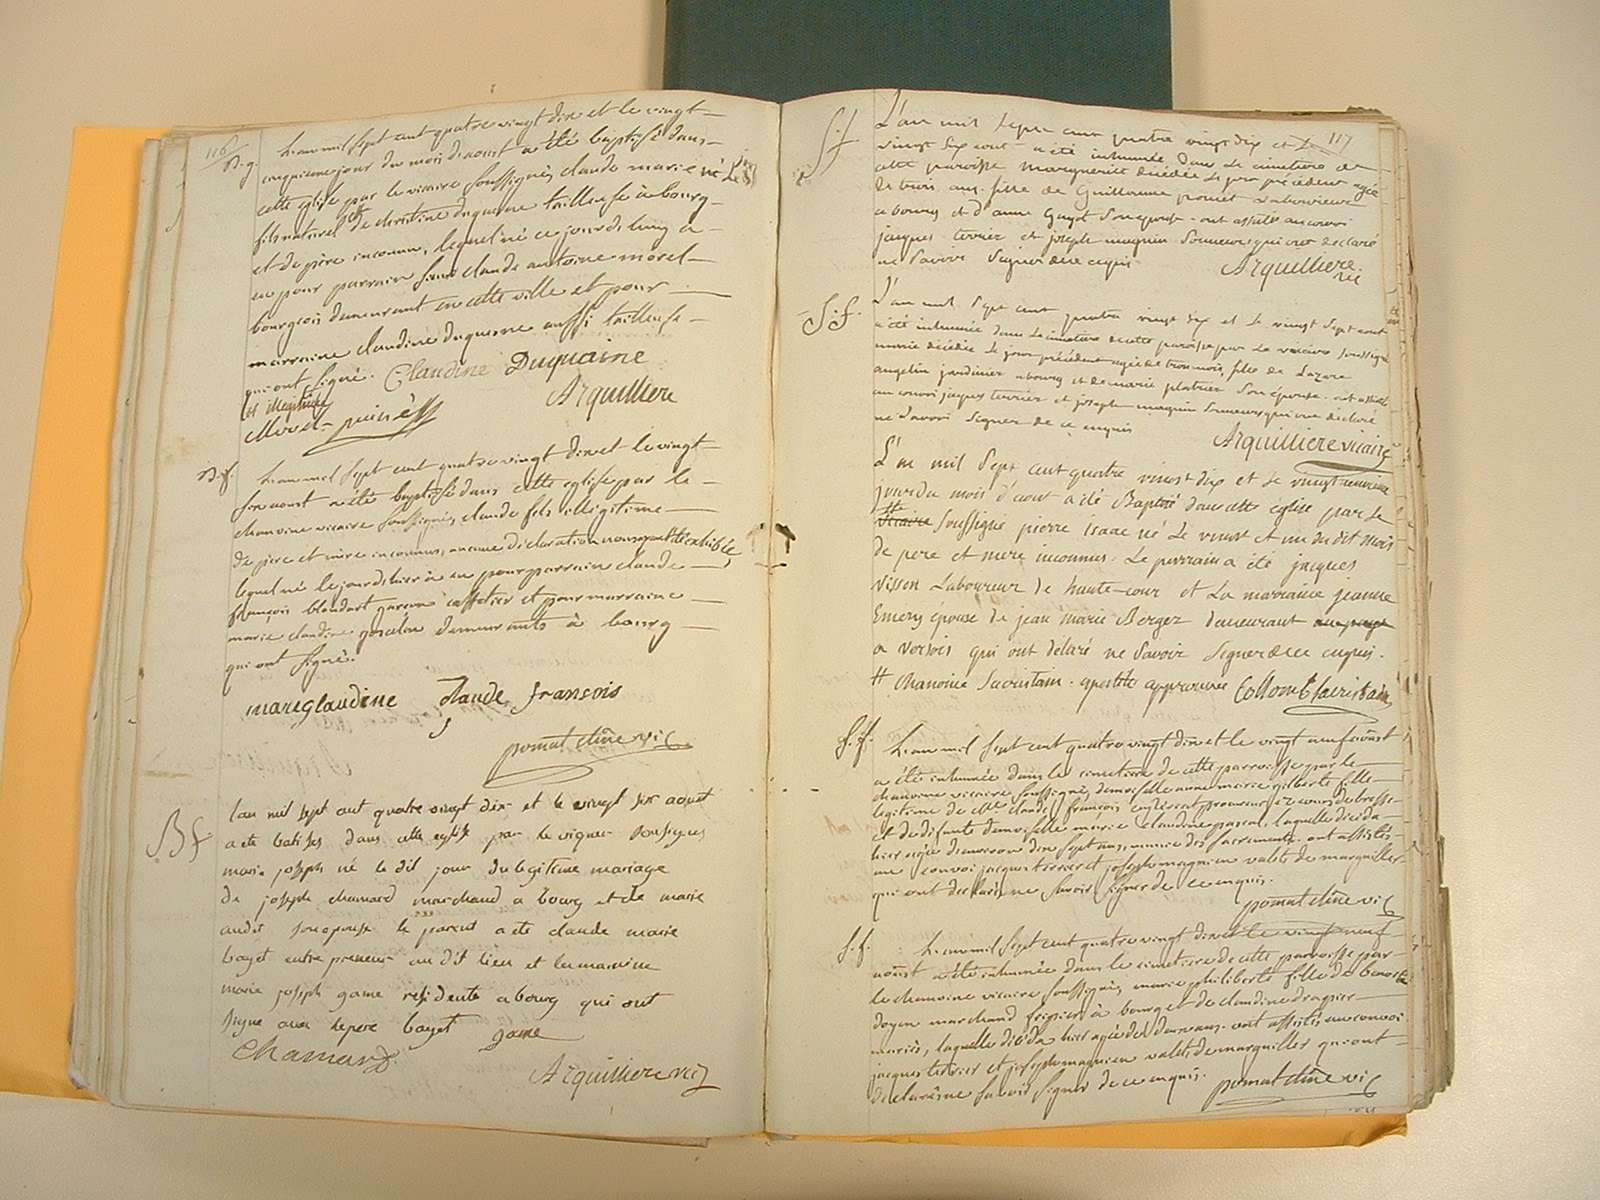 116
B. g.
L'an mil sept cent quatre vingt dix et le vingt
cinquieme jour du mois d'aoust a été baptisé dans
cette eglise par le vicaire soussigné, claude marie né le
fils naturel de christine duquesne tailleuse à bourg
et de père inconnu, lequel né ce jourdhuy a
eu pour parrain sieur claude antoine morel
bourgeois demeurant en cette ville et pour
marraine claudine duquesne aussi tailleuse
qui ont signé. Claudine Duquaine
et illegitime
Morel puinè Arquilliere
B. f.
L'an mil sept cent quatre vingt dix et le vingt
six aoust a été baptisé dans cette eglise par le
chanoine vicaire soussigné, claude fils illégitime
de père et mère inconnus, aucune déclaration nous ayant été exhibée
lequel né le jourdhier à eu pour parrain claude
françois blondart garçon caffetier et pour marraine
marie claudine demeurants à bourg
qui ont signé.
marie glaudine claude fransois
pomat chne vic
B f
lan mil sept cent quatre vingt dix et le vingt six aoust
a ete batises dans cette eglise par le viquer sousignes
marie joseph né le dit jour du legitime mariage
de joseph chamard marchand a bourg et de marie
audit son epouse le parent a ete claude marie
bayet entrepreneur au dit lieu et la maraine
marie joseph game residente a bourg qui ont
signe avec le pere bayet game
Chamard
Arquilliere vic
117
S f
L'an mil sept cent quatre vingt dix et le
vingt six aout a été inhumée dans le cimetiere de
cette paroisse marguerite décédée le jour précédent agée
de trois ans fille de Guillaume laboureur
a bourg et d'anne Guyot son epouse. ont assisté au convoi
jacques terrier et joseph magnin sonneurs qui ont declaré
ne savoir signer de ce enquis.
Arquilliere vic
S. f.
L'an mil sept cent quatre vingt dix et le vingt sept aout
a été inhumée dans le cimetiere de cette paroisse par le vicaire soussigné
marie décédée le jour précédent agée de trois mois, fille de Lazare
angelin jardinier a bourg et de marie platrier son épouse. ont assisté
au convoi jacques terrier et joseph magnin sonneurs qui ont declaré
ne savoir signer de ce enquis
Arquilliere vicaire
L'an mil sept cent quatre vingt dix et le vingt neuvieme
jour du mois d'aout a été Baptisé dans cette église par le
vicaire soussigné pierre isaac né Le vingt et un du dit mois
de pere et mere inconnus. Le parrain a été jacques
visson Laboureur de haute-cour et La marraine jeanne
Emery épouse de jean marie Berger demeurant
a versois qui ont délaré ne savoir signer de ce enquis.
# chanoine Sacristain. apostile approuvée Collomb sacristain
S. f.
L'an mil sept cent quatre vingt dix et le vingt neuf aoust
a été inhumée dans le cimetiere de cette parroisse par le
chanoine vicaire soussigné, demoiselle anne marie gilberte fille
legitime de Me claude françois procureur ez cours de bresse
et de défunte demoiselle marie claudine pascal, laquelle décéda
hier agée d'environ dix sept ans, munie des sacrements. ont assistés
au convoi jacques terrier et joseph magnien valets de marguillier
qui ont déclaré, ne savoir signer de ce enquis.
pomat chne vic
S. f.
L'an mil sept cent quatre vingt dix et le vingt neuf
aoust a été inhumée dans le cimetiere de cette parroisse par
le chanoine vicaire soussigné, marie philiberte fille de benoit
doyen marchand fripier à bourg et de claudine dragier
mariés, laquelle décéda hier agée de deux ans. ont assistés au convoi
jacques terrier et joseph magnien valets de marguillier qui ont
déclaré ne savoir signer de ce enquis. pomat chne vic